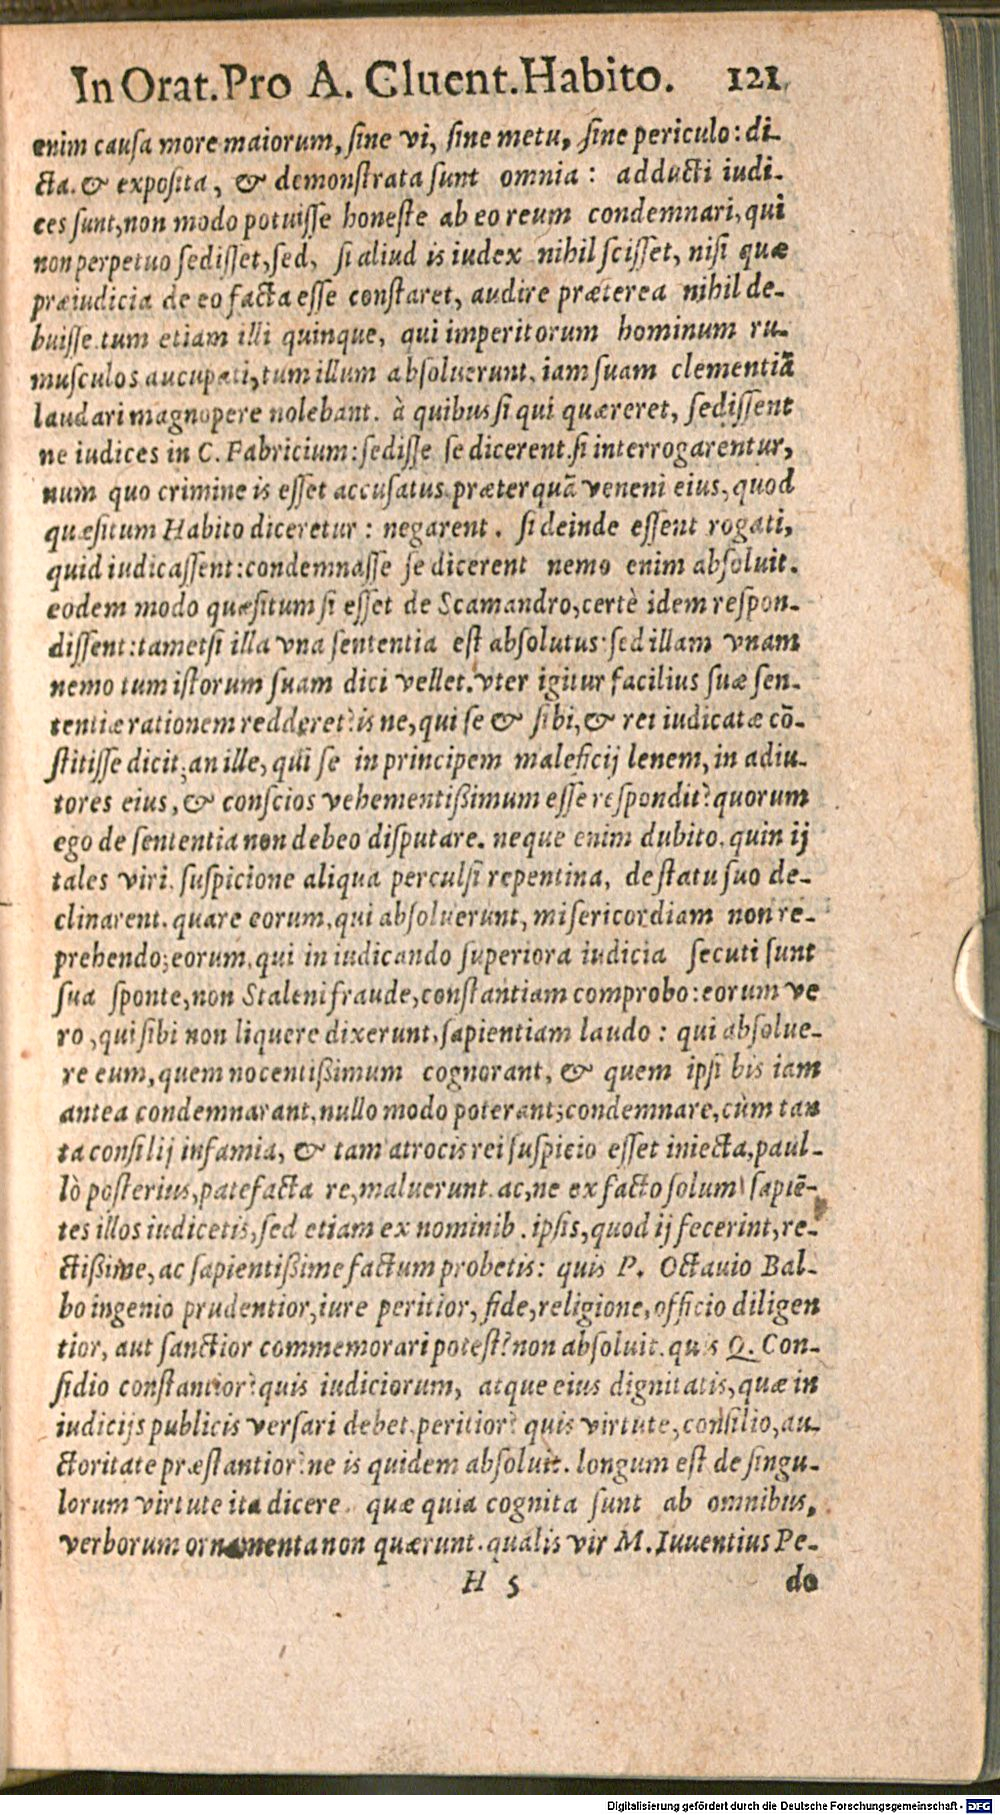 In Orat. Pro A. Cluent. Habito. 121
enim causa more maiorum, sine vi, sine metu, sine periculo: di-
cta. & exposita, & demonstrata sunt omnia: adducti iudi-
ces sunt, non modo potuisse honeste ab eo reum condemnari, qui
non perpetuo sedisset, sed, si aliud is iudex nihil scisset, nisi quæ
præiudicia de eo facta esse constaret, audire præterea nihil de-
buisse. tum etiam illi quinque, qui imperitorum hominum ru-
musculos aucupati, tum illum absoluerunt, iam suam clementiã
laudari magnopere nolebant. à quibus si qui quæreret, sedissent
ne iudices in C. Fabricium: sedisse se dicerent. si interrogarentur,
num quo crimine is esset accusatus præterquã veneni eius, quod
quæsitum Habito diceretur: negarent. si deinde essent rogati,
quid iudicassent: condemnasse se dicerent nemo enim absoluit.
eodem modo quæsitum si esset de Scamandro, certè idem respon-
dissent: tametsi illa vna sententia est absolutus: sed illam vnam
nemo tum istorum suam dici vellet. vter igitur facilius suæ sen-
tentiæ rationem redderet? is ne, qui se & sibi, & rei iudicatæ cõ-
stitisse dicit; an ille, qui se in principem maleficij lenem, in adiu-
tores eius, & conscios vehementißimum esse respondit? quorum
ego de sententia non debeo disputare. neque enim dubito. quin ij
tales viri. suspicione aliqua perculsi repentina, de statu suo de-
clinarent. quare eorum, qui absoluerunt, misericordiam non re-
prehendo; eorum, qui in iudicando superiora iudicia secuti sunt
sua sponte, non Staleni fraude, constantiam comprobo: eorum ve
ro, qui sibi non liquere dixerunt, sapientiam laudo: qui absolue-
re eum, quem nocentißimum cognorant, & quem ipsi bis iam
antea condemnarant, nullo modo poterant; condemnare, cùm tan
ta consilij infamia, & tam atrocis rei suspicio esset iniecta, paul-
lò posterius, patefacta re, maluerunt. ac, ne ex facto solum sapiẽ-
tes illos iudicetis, sed etiam ex nominib. ipsis, quod ij fecerint, re-
ctißime, ac sapientißime factum probetis: quis P. Octauio Bal-
bo ingenio prudentior, iure peritior, fide, religione, officio diligen
tior, aut sanctior commemorari potest? non absoluit. quis Q. Con-
sidio constantior? quis iudiciorum, atque eius dignitatis, quæ in
iudicijs publicis versari debet, peritior? quis virtute, consilio, au-
ctoritate præstantior? ne is quidem absoluit. longum est de singu-
lorum virtute ita dicere. quæ quia cognita sunt ab omnibus,
verborum ornamenta non quærunt. qualis vir M. Iuuentius Pe-
H 5 do
Digitalisierung gefördert durch die Deutsche Forschungsgemeinschaft - DFG